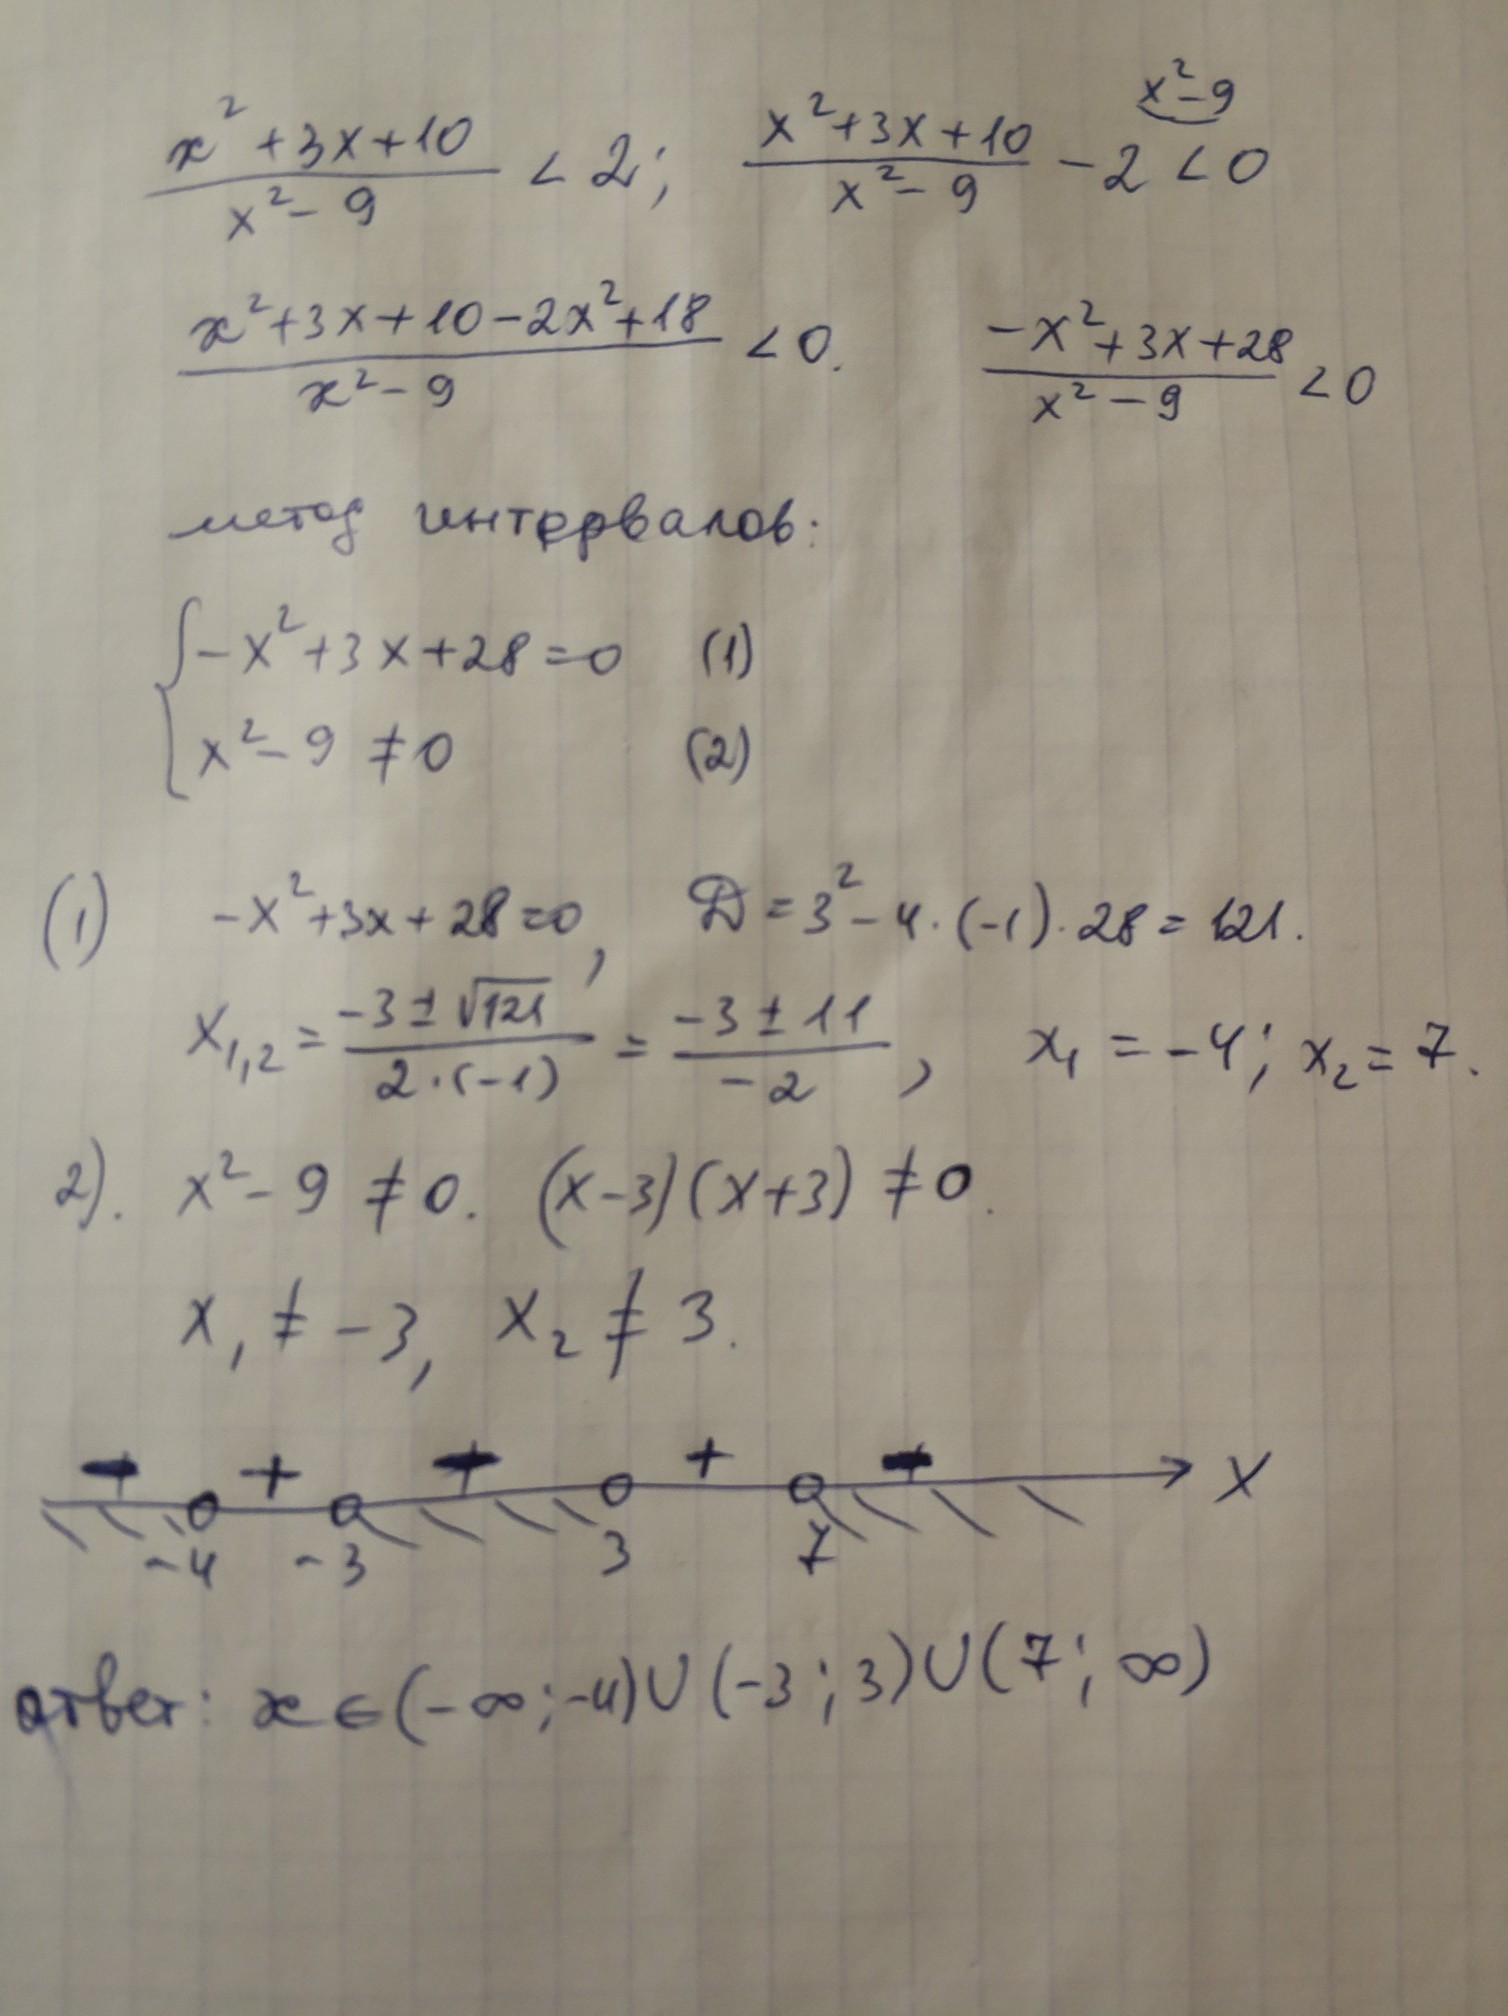 (x²+3x+10)/(x²-9) < 2; (x²+3x+10)/(x²-9) - 2 < 0 x²-9
(x²+3x+10-2x²+18)/(x²-9) < 0. (-x²+3x+28)/(x²-9) < 0
метод интервалов:
{ -x²+3x+28=0 (1)
x²-9 ≠ 0 (2)
(1) -x²+3x+28=0, D = 3²-4·(-1)·28 = 121.
x₁,₂ = (-3±√121)/(2·(-1)) = (-3±11)/(-2), x₁ = -4; x₂ = 7.
2). x²-9 ≠ 0. (x-3)(x+3) ≠ 0.
x₁ ≠ -3, x₂ ≠ 3.
- + - + - x
-4 -3 3 7
ответ: x ∈ (-∞;-4)∪(-3;3)∪(7;∞)